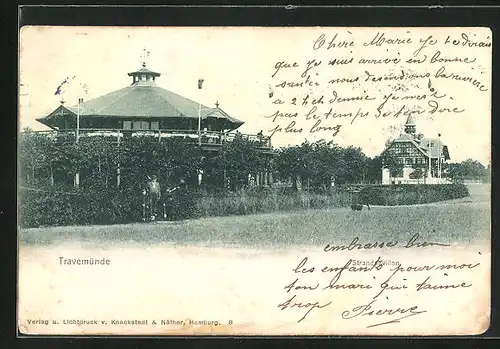 Chère Marie je te dirais
que je suis arrive en bonne
sante nous desendons la
a 2 h ch je n'ai pas
le temps de ten dire
plus long
embrasse bien
les enfants pour moi
ton mari qui taime
trop Pierre
Travemünde
Strandpavillon
Verlag u. Lichtdruck v. Knackstedt & Näther, Hamburg. 8